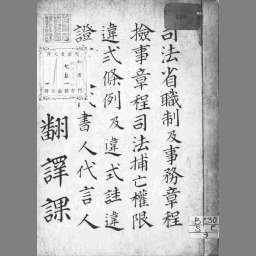 司法省職制及事務章程
檢事章程司法捕亡權限
違式條例及違式詿違
證書人代言人
翻譯課